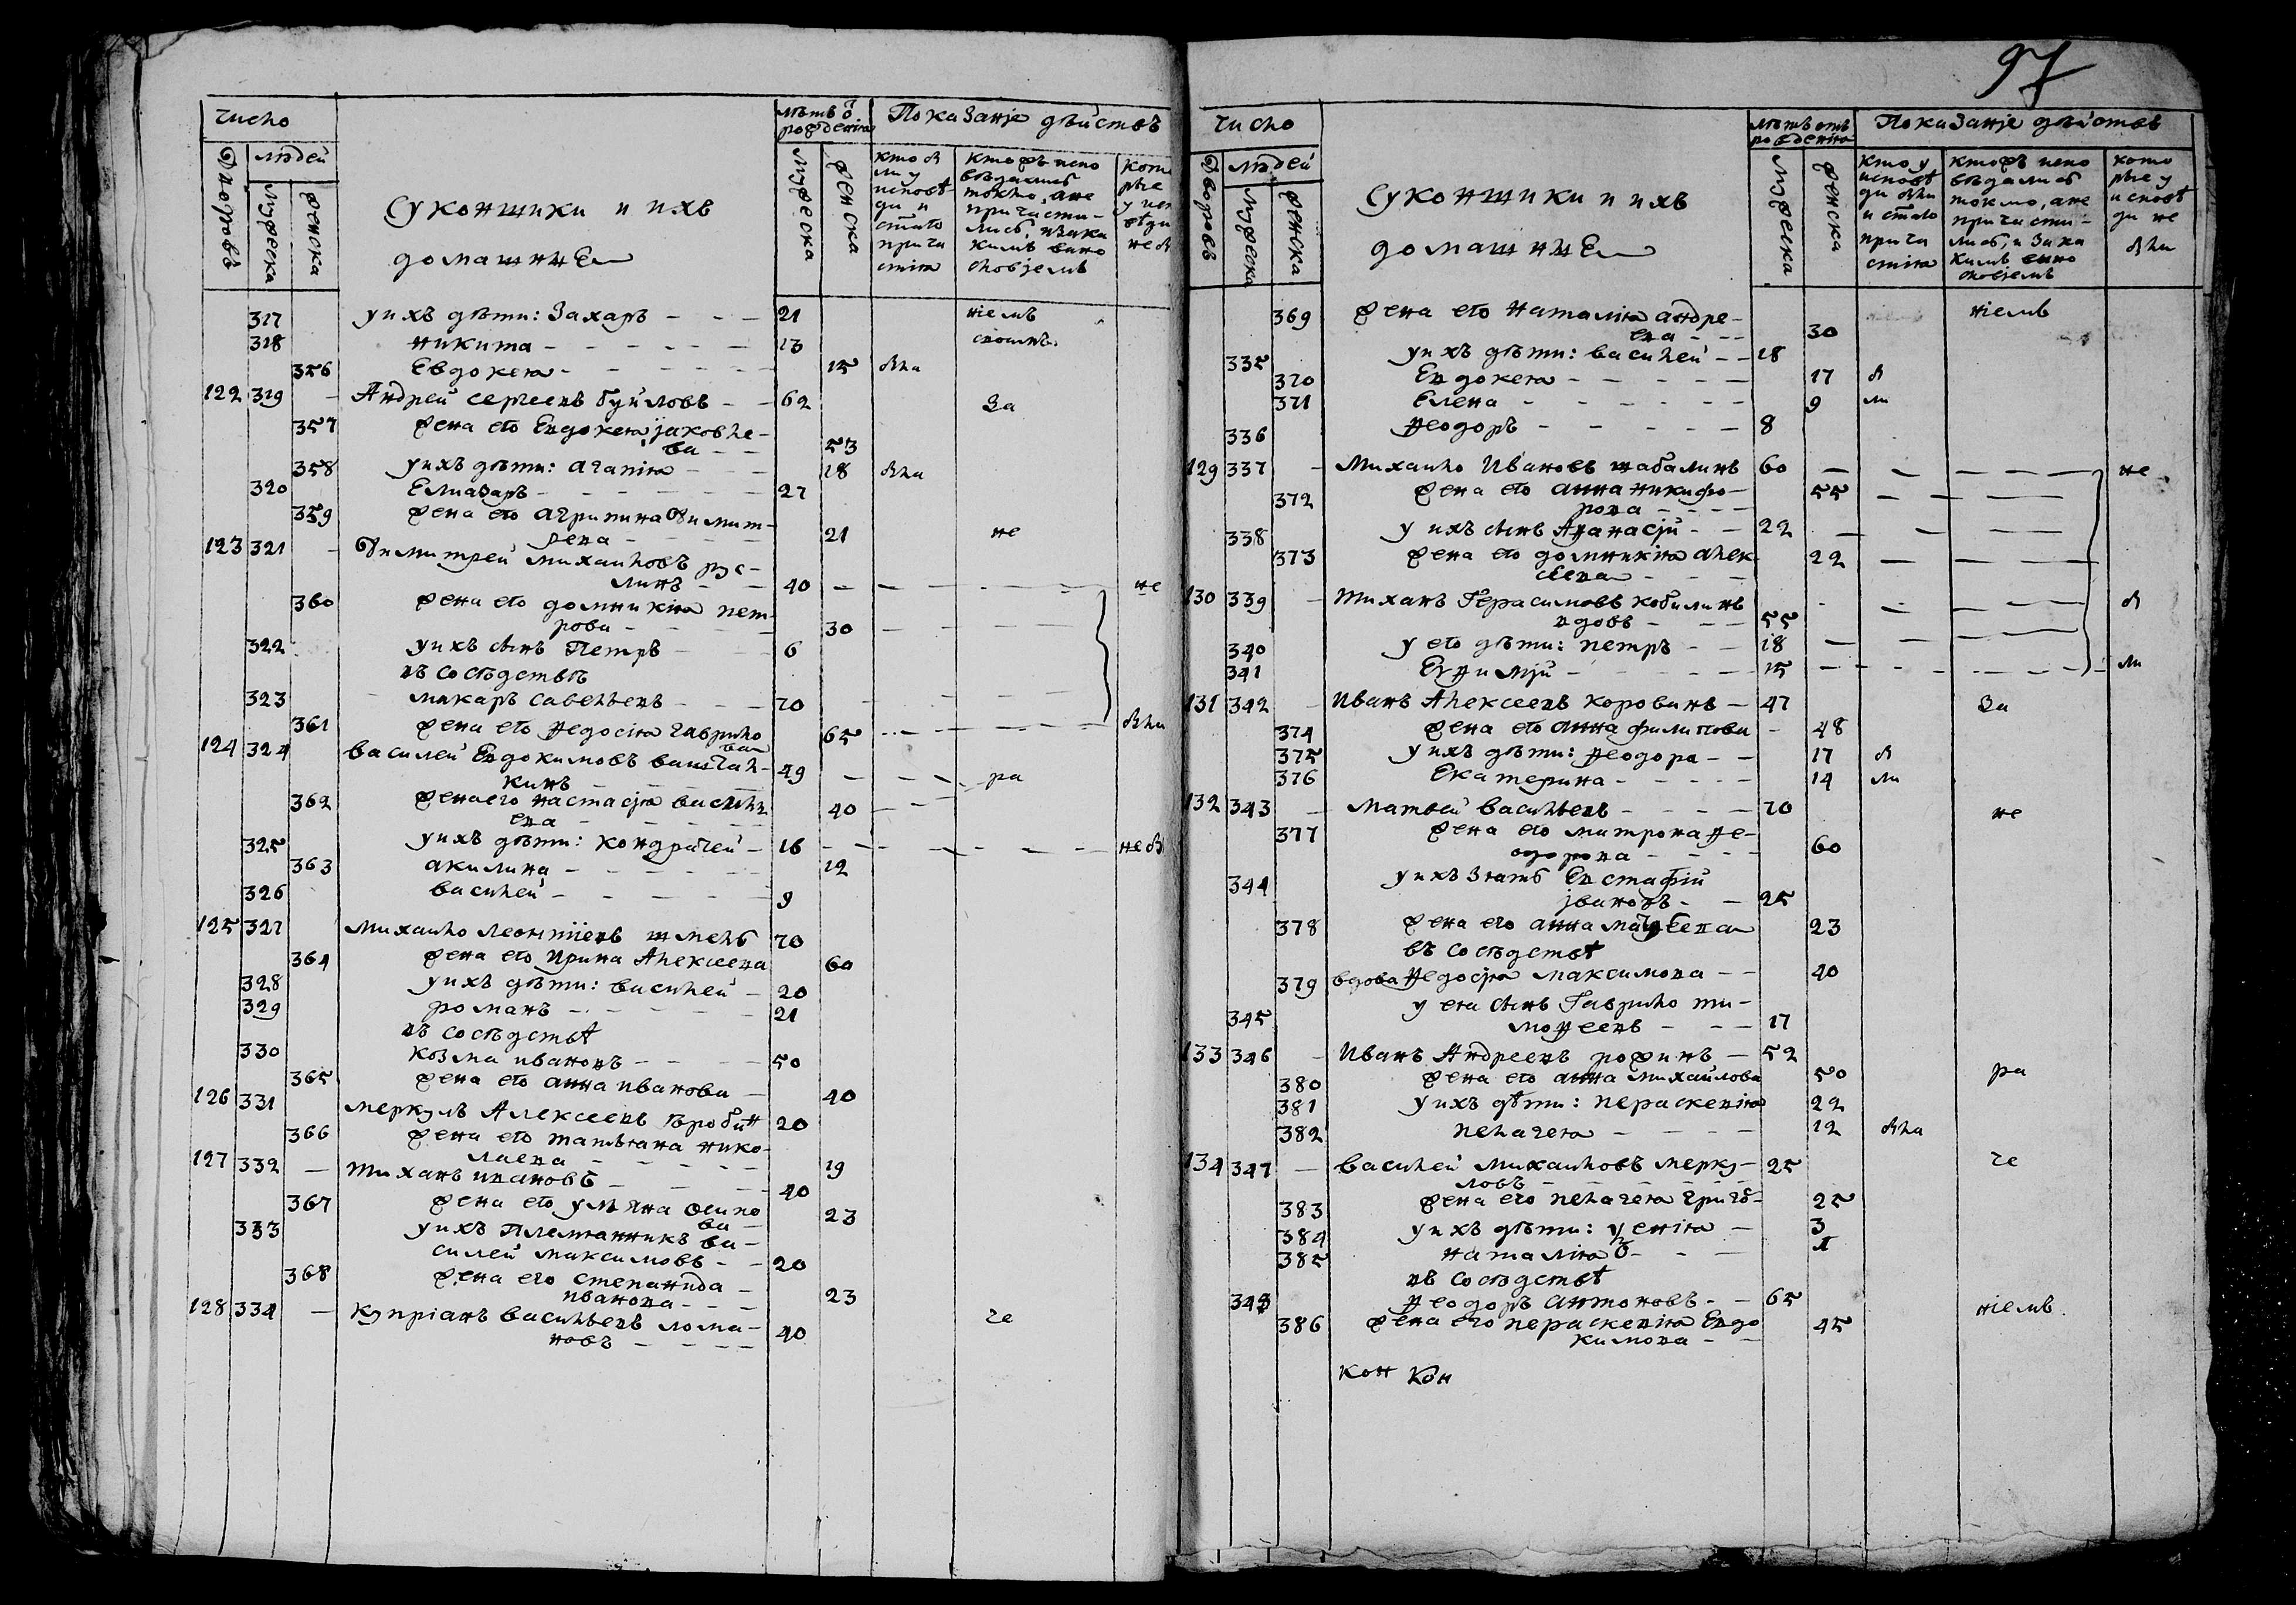 97
число
лѣтъ ѿ рожденія
Показаніе дѣйствъ
Дворовъ
людей
мужеска
женска
Суконщики и ихъ
домашнıе
мужеска
женска
кто были у исповѣди и ст҃аго причастія
кто жъ исповѣдались токмо, а не причастились, и за каким винословіем
317 у ихъ дѣти: Захаръ - - - 21 ніемъ
318 никита - - - - - 13
356 Евдокея - - - - - 15 были
122 319 - Андрей Сергеевъ - - 62 За
357 жена его Евдокея яковле-
ва - - 53
358 у ихъ дѣти: агапия - - - 18 были
320 Елиазаръ - - - - - 27
359 жена его агрипина Димит-
рева - - - 21 не
123 321 - Димитрей михайловъ рус-
линъ - - 40 не
360 жена его домникия пет-
рова - - - 30
322 у ихъ сынъ Петръ - - 6
въ сосѣдствѣ
323 макаръ савельевъ - - - 70
361 жена его Ѳедосия гаврило
ва 65 были
124 324 василей Евдокимовъ
кинъ - - - 49 ра
362 жена его настасія василь
ева - - - 40
325 у ихъ дѣти: кондратей - 16 не
363 акилина - - - - 12
326 василей - - - - - 9
125 327 михайло леонтіевъ шмель 70
364 жена его Ирина Алексеева 60
328 у ихъ дѣти: василей - 20
329 романъ - - - - - 21
въ сосѣдствѣ
330 козма ивановъ - - - 50
365 жена его анна иванова - 40
126 331 меркулъ Алексеевъ 20
366 жена его татьяна нико-
лаева - - - - 19
127 332 - тиханъ ивановъ - - - 40
367 жена его ульяна осипо
ва - 23
333 у ихъ племянникъ ва-
силей максимовъ - - 20
368 жена его степанида -
иванова - - - 23
128 334 - Купріанъ васильевъ лома-
новъ - - - - 40 че
число
лѣтъ отъ рожденія
Показаніе дѣйствъ
Дворовъ
людей
мужеска
женска
Суконщики и ихъ
домашнıе
мужеска
женска
кто у исповѣди были и ст҃аго причастія
кто жъ исповѣдались токмо, а не причастились, и за каким винословіемъ
которые у исповѣди не были
369 жена его наталия андре-
ева - - - 30 ніемъ
335 у ихъ дѣти: василей - - 18
370 Евдокея - - - - - 17 бы
371 Елена - - - - - - 9 ли
336 Ѳеодоръ - - - - - 8
129 337 - михайло Ивановъ шабалинъ 60 не
372 жена его анна никифо-
рова - - - - 55
338 у ихъ сынъ Аѳанасій - - 22
373 жена его домникия алек-
сеева - - - 22
130 339 - тиханъ Герасимовъ кобилинъ
вдовъ - - - 55 бы
340 у его дѣти: петръ - - 18
341 Еуѳимій - - - - - 15 ли
131 342 - Иванъ Алексеевъ коровинъ - 47 За
374 жена его анна филипова - 48
375 у ихъ дѣти: Ѳеодора - - 17 бы
376 Екатерина - - - - - 14 ли
132 343 - матвей васильевъ - - - - 70 не
377 жена его матрона Ѳе-
одорова - - - - 60
344 у ихъ зять Евстафій
івановъ - - 25
378 жена его анна 23
въ сосѣдствѣ
379 вдова Ѳедосія максимова - - 40
у ея сынъ Гаврило ти-
моѳеевъ - - - 17
345
133 346 - Иванъ Андреевъ рожинъ - 52
380 жена его анна михайлова 50 ра
381 у ихъ дѣти: пераскевия 22
382 пелагея - - - - - 12 были
134 347 - василей михайловъ мерку-
ловъ - - - - - - 25 че
383 жена его пелагея григо- 25
384 у ихъ дѣти: - 3
385 наталия - - -
въ сосѣдствѣ
348 Ѳеодоръ антоновъ - - 65 ніемъ
386 жена его пераскевия Евдо
кимова - - 45
кон Кон